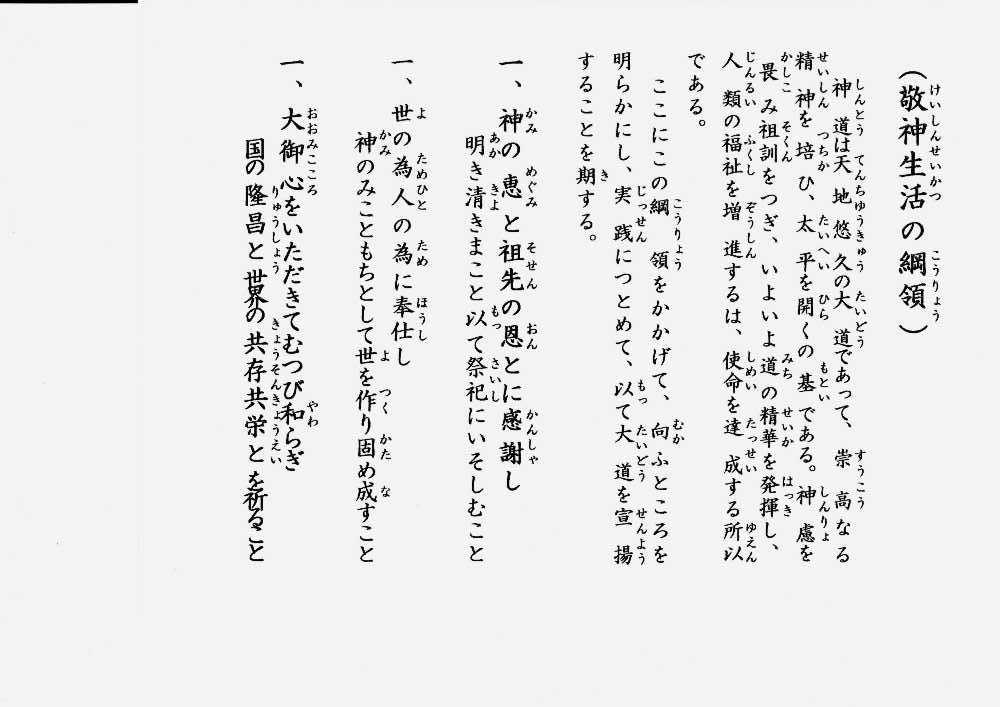 （敬神生活の綱領）
神道は天地悠久の大道であって、崇高なる
精神を培ひ、太平を開くの基である。神慮を
畏み祖訓をつぎ、いよいよ道の精華を発揮し、
人類の福祉を増進するは、使命を達成する所以
である。
ここにこの綱領をかかげて、向ふところを
明らかにし、実践につとめて、以て大道を宣揚
することを期する。
一、神の恵と祖先の恩とに感謝し
明き清きまこと以て祭祀にいそしむこと
一、世の為人の為に奉仕し
神のみこともちとして世を作り固め成すこと
一、大御心をいただきてむつび和らぎ
国の隆昌と世界の共存共栄とを祈ること